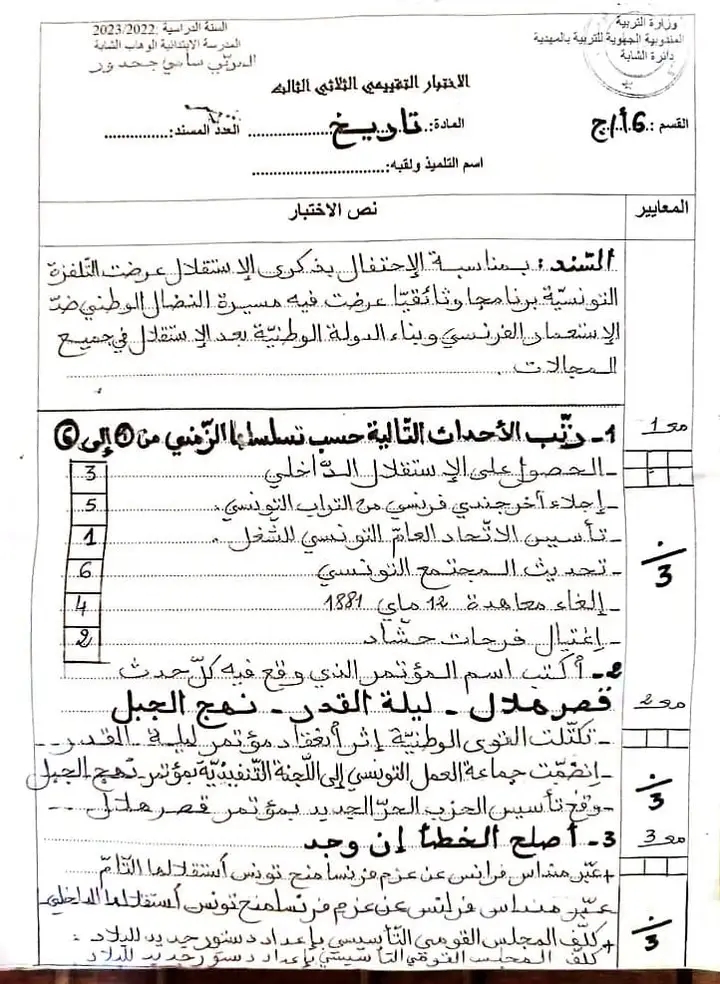 وزارة التربية
المندوبية الجهوية للتربية بالمهدية
دائرة الشابة
السنة الدراسية :2023/2022
المدرسة الابتدائية الوهاب الشابة
المربّي سامي جحدور
الاختبار التقييمي الثلاثي الثالث
القسم :.6.أ/ج
المادة:..تاريخ..............
العدد المسند:..............
اسم التلميذ ولقبه:..............................
المعايير
نص الاختبار
السّند : بمناسبة الإحتفال بذكرى الإستقلال عرضت التّلفزة
التونسيّة برنامجا وثائقيّا عرضت فيه مسيرة النضال الوطني ضدّ
الإستعمار الفرنسي وبناء الدولة الوطنيّة بعد الإستقلال في جميع
المجالات.
مع 1
1- رتّب الأحداث التّالية حسب تسلسلها الزّمني من 1 إلى 6
- الحصول على الإستقلال الدّاخلي 3
- إجلاء آخر جندي فرنسي من التراب التونسي. 5
- تأسيس الاتّحاد العامّ التونسي للشّغل. 1
- تحديث المجتمع التونسي 6
- إلغاء معاهدة 12 ماي 1881 4
- إغتيال فرحات حشّاد 2
/3
2- أكتب اسم المؤتمر الذي وقع فيه كلّ حدث
مع 2
قصر هلال - ليلة القدر - نهج الجبل
- تكتّلت القوى الوطنيّة إثر أنعقاد مؤتمر ليلة القدر
- إنضمّت جماعة العمل التونسي إلى اللّجنة التّنفيذيّة بمؤتمر نهج الجبل
- وقع تأسيس الحزب الحرّ الجديد بمؤتمر قصر هلال
/3
مع 3
3- أصلح الخطأ إن وجد
+ عبّر منداس فرانس عن عزم فرنسا منح تونس أستقلالها التّامّ
عبّر منداس فرانس عن عزم فرنسا منح تونس أستقلالها الداخلي
+ كلّف المجلس القومي التأسيسي بإعداد دستور جديد للبلاد :
كلّف المجلس القومي التأسيسي بإعداد دستور جديد للبلاد
/3